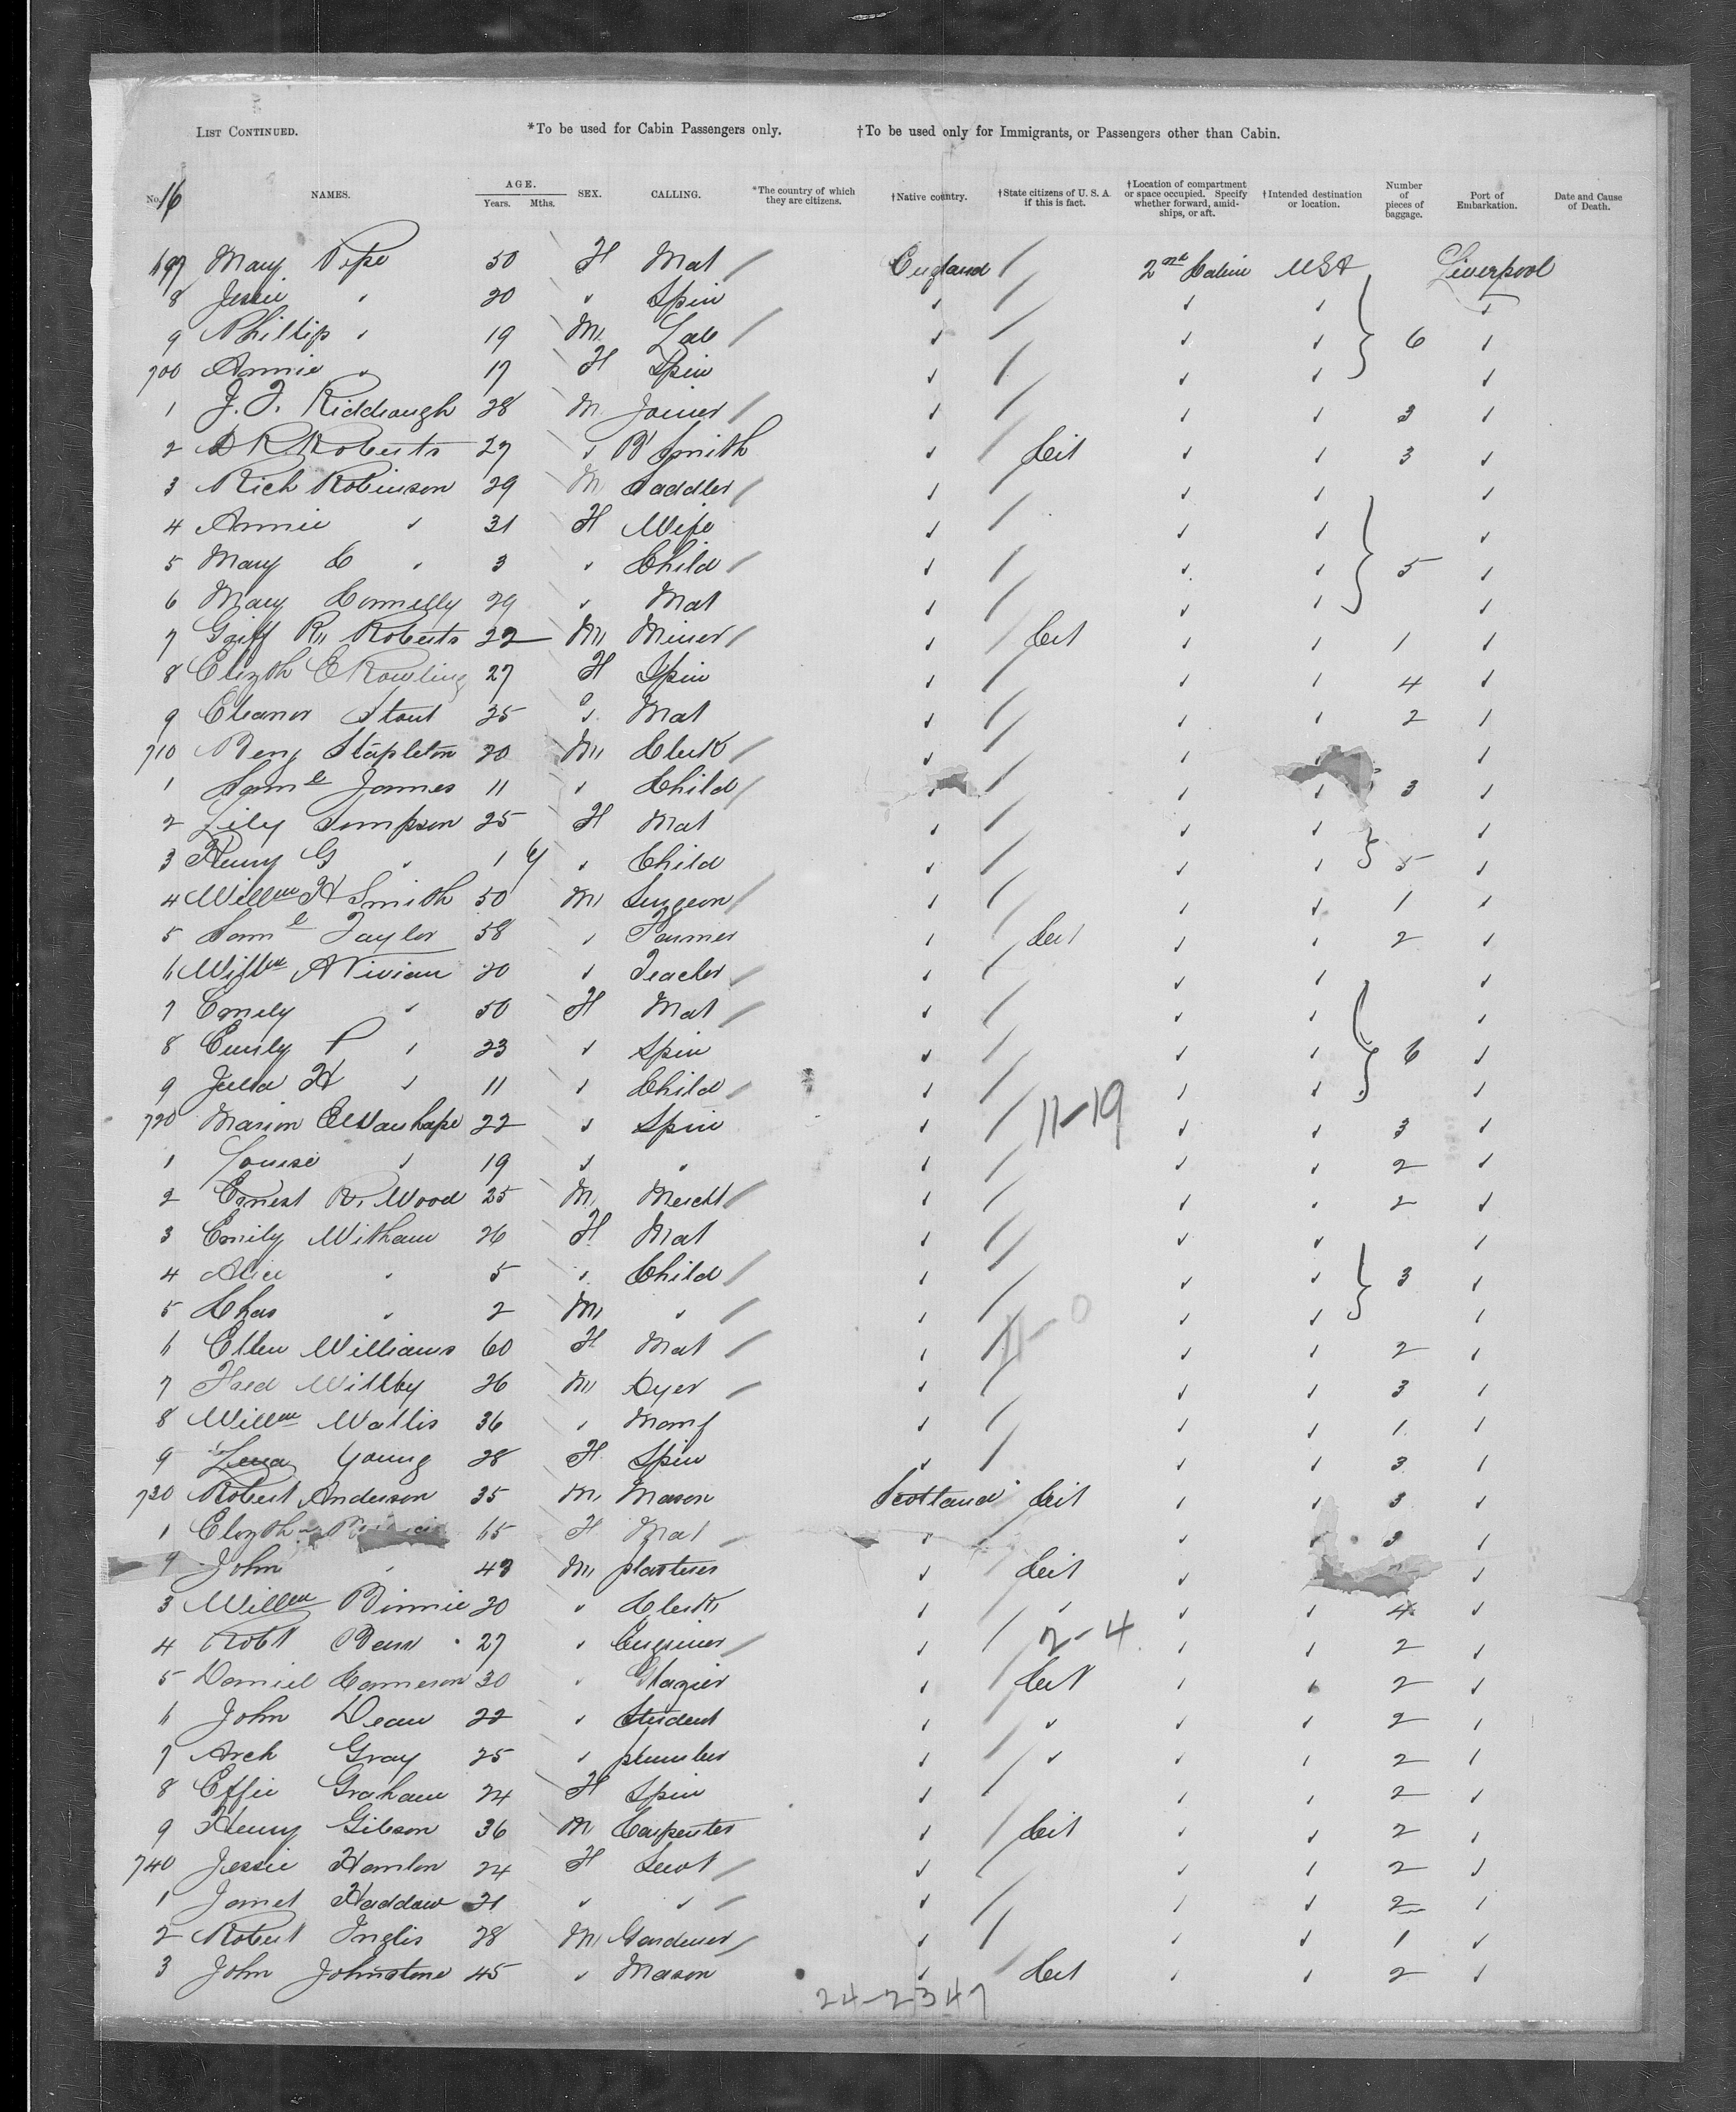 LIST CONTINUED. *To be used for Cabin Passengers only. †To be used only for Immigrants, or Passengers other than Cabin.
No. 16 NAMES. AGE. Years. Mths. SEX. CALLING. *The country of which they are citizens. †Native country. †State citizens of U. S. A. if this is fact. †Location of compartment or space occupied. Specify whether forward, amidships, or aft. †Intended destination or location. Number of pieces of baggage. Port of Embarkation. Date and Cause of Death.
697 Mary Pipe 50 F Mat / England / 2nd Cabin USA Liverpool
8 Jessie " 20 " Spin " / " " "
9 Phillip " 19 M Lab / " / " " 6 "
700 Annie " 17 F Spin " / " " "
1 J. J. Riddiough 28 M Joiner / " / " " 3 "
2 R Roberts 27 " B Smith " / Cit " " 3 "
3 Rich Robinson 29 M Saddler / " / " " "
4 Annie " 31 F Wife " / " " "
5 Mary C " 3 " Child / " / " " 5 "
6 Mary Connelly 29 " Mat " / " " "
7 Griff R Roberts 22 M Miner / " / Cit " " 1 "
8 Elizth E Rowling 27 F Spin " / " " 4 "
9 Eleanor Stout 25 " Mat " / " " 2 "
710 Benj Stapleton 20 M Clerk / " / " "
1 Saml James 11 " Child / " / " " 3 "
2 Lily Simpson 25 F Mat " / " " "
3 Henry G " 1 " Child " / " " 5 "
4 Willm H Smith 50 M Surgeon / " / " " 1 "
5 Saml Taylor 58 " Farmer " / Cit " " 2 "
6 Willm A Vivian 20 " Teacher / " / " " "
7 Emily " 50 F Mat / " / " " "
8 Emily P " 23 " Spin " / " " 6 "
9 Julia H " 11 " Child / " / " " "
720 Marion E 22 " Spin " / 11-19 " " 3 "
1 Louise " 19 " " " / " " 2 "
2 Ernest R. Wood 25 M Mercht / " / " " 2 "
3 Emily Witham 26 F Mat " / " " "
4 Alice " 5 " Child / " / " " 3 "
5 Chas " 2 M " / " / " " "
6 Ellen Williams 60 F Mat / " / 11-0 " " 2 "
7 Fred Willby 26 M Dyer / " / " " 3 "
8 Willm Wallis 36 " Manf " / " " 1 "
9 Young 28 F Spin " / " " 3 "
730 Robert Anderson 35 M Mason Scotland Cit " " 3 "
1 Elizth 65 F Mat / " / " " 3 "
John " 43 M plasterer " / Cit " "
3 Willm Binnie 20 " Clerk " / " " " 4 "
4 Robt 27 " Engineer / " / 2-4 " " 2 "
5 Daniel Cameron 30 " Glazier " / Cit " " 2 "
6 John Dean 22 " Student " / " " " 2 "
7 Arch Gray 25 " plumber " / " " " 2 "
8 Effie Graham 24 F Spin " / " " 2 "
9 Henry Gibson 36 M Carpenter " / Cit " " 2 "
740 Jessie Hamlon 24 F Servt / " / " " 2 "
1 Janet Haddow 21 " " / " / " " 2 "
2 Robert Inglis 28 M Gardener / " / " " 1 "
3 John Johnstone 45 " Mason " / Cit " " 2 "
24-2347